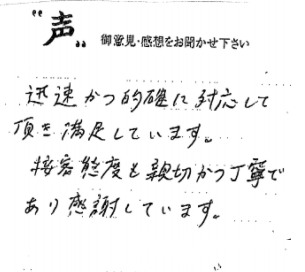 "声" 御意見・感想をお聞かせ下さい
迅速かつ的確に対応して
頂き満足しています。
接客態度も親切かつ丁寧で
あり感謝しています。